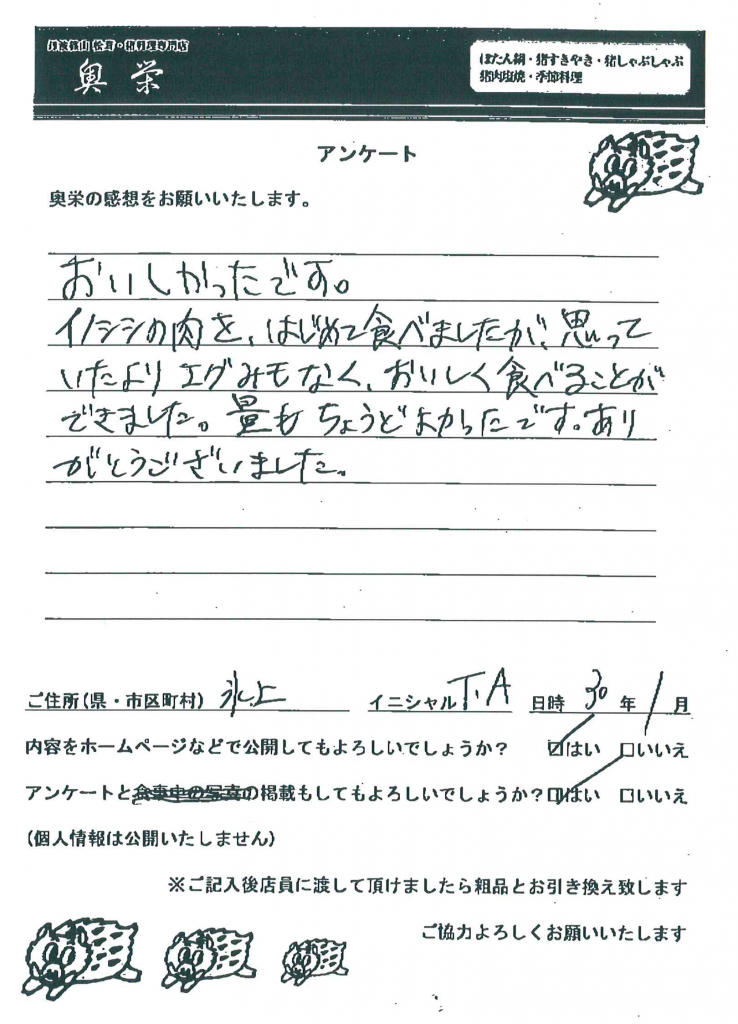 丹波篠山 松茸・猪料理専門店
奥栄
ぼたん鍋・猪すきやき・猪しゃぶしゃぶ
猪肉塩焼・季節料理
アンケート
奥栄の感想をお願いいたします。
おいしかったです。
イノシシの肉を、はじめて食べましたが、思って
いたよりエグみもなく、おいしく食べることが
できました。量もちょうどよかったです。あり
がとうございました。
ご住所(県・市区町村) 氷上 イニシャル T.A 日時 30 年 1 月
内容をホームページなどで公開してもよろしいでしょうか? ☑はい □いいえ
アンケートと食事中の写真の掲載もしてもよろしいでしょうか?☑はい □いいえ
(個人情報は公開いたしません)
※ご記入後店員に渡して頂けましたら粗品とお引き換え致します
ご協力よろしくお願いいたします